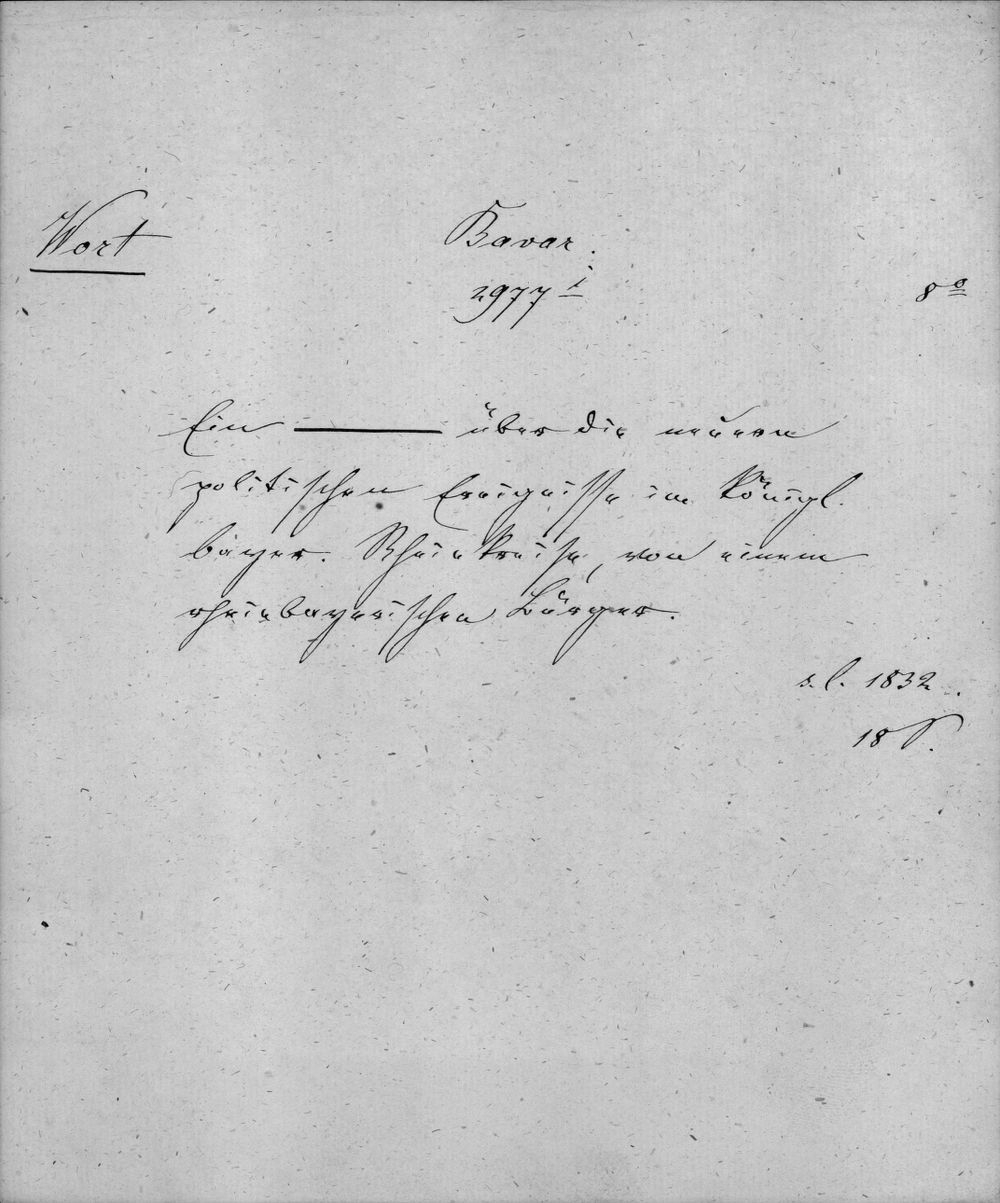 Wort
Bavar.
2977 i
8o
Ein ——— über die neuern
politischen Ereignisse im königl.
bayer. Rheinkreise, von einem
rheinbayerischen Bürger.
s. l. 1832.
18 S.